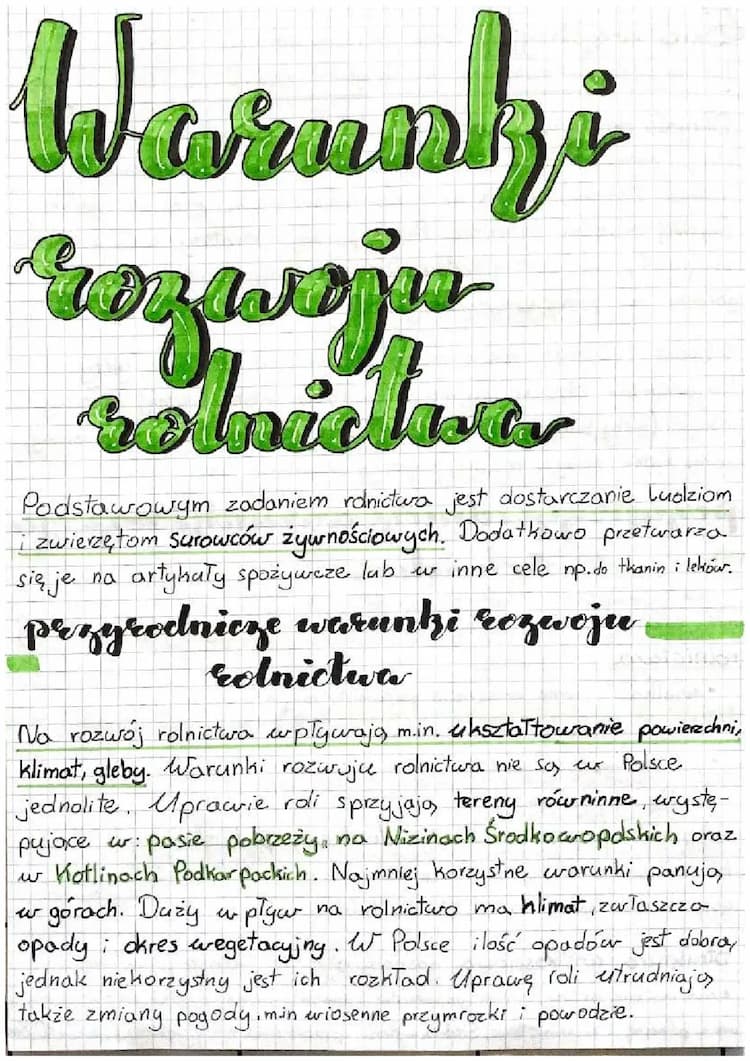 Warunki
rozwoju
rolnictwa
Podstawowym zadaniem rolnictwa jest dostarczanie ludziom
i zwierzętom surowców żywnościowych. Dodatkowo przetwarza
się je na artykuły spożywcze lub w inne cele np. do tkanin i leków.
przyrodnicze warunki rozwoju
rolnictwa
Na rozwój rolnictwa wpływają m.in. ukształtowanie powierzchni,
klimat, gleby. Warunki rozwoju rolnictwa nie są w Polsce
jednolite. Uprawie roli sprzyjają tereny równinne, wystę-
pujące w: pasie pobrzeży, na Nizinach Środkowopolskich oraz
w Kotlinach Podkarpackich. Najmniej korzystne warunki panują
w górach. Duży wpływ na rolnictwo ma klimat, zwłaszcza
opady i okres wegetacyjny. W Polsce ilość opadów jest dobra,
jednak niekorzystny jest ich rozkład. Uprawę roli utrudniają
także zmiany pogody, min wiosenne przymrozki i powodzie.